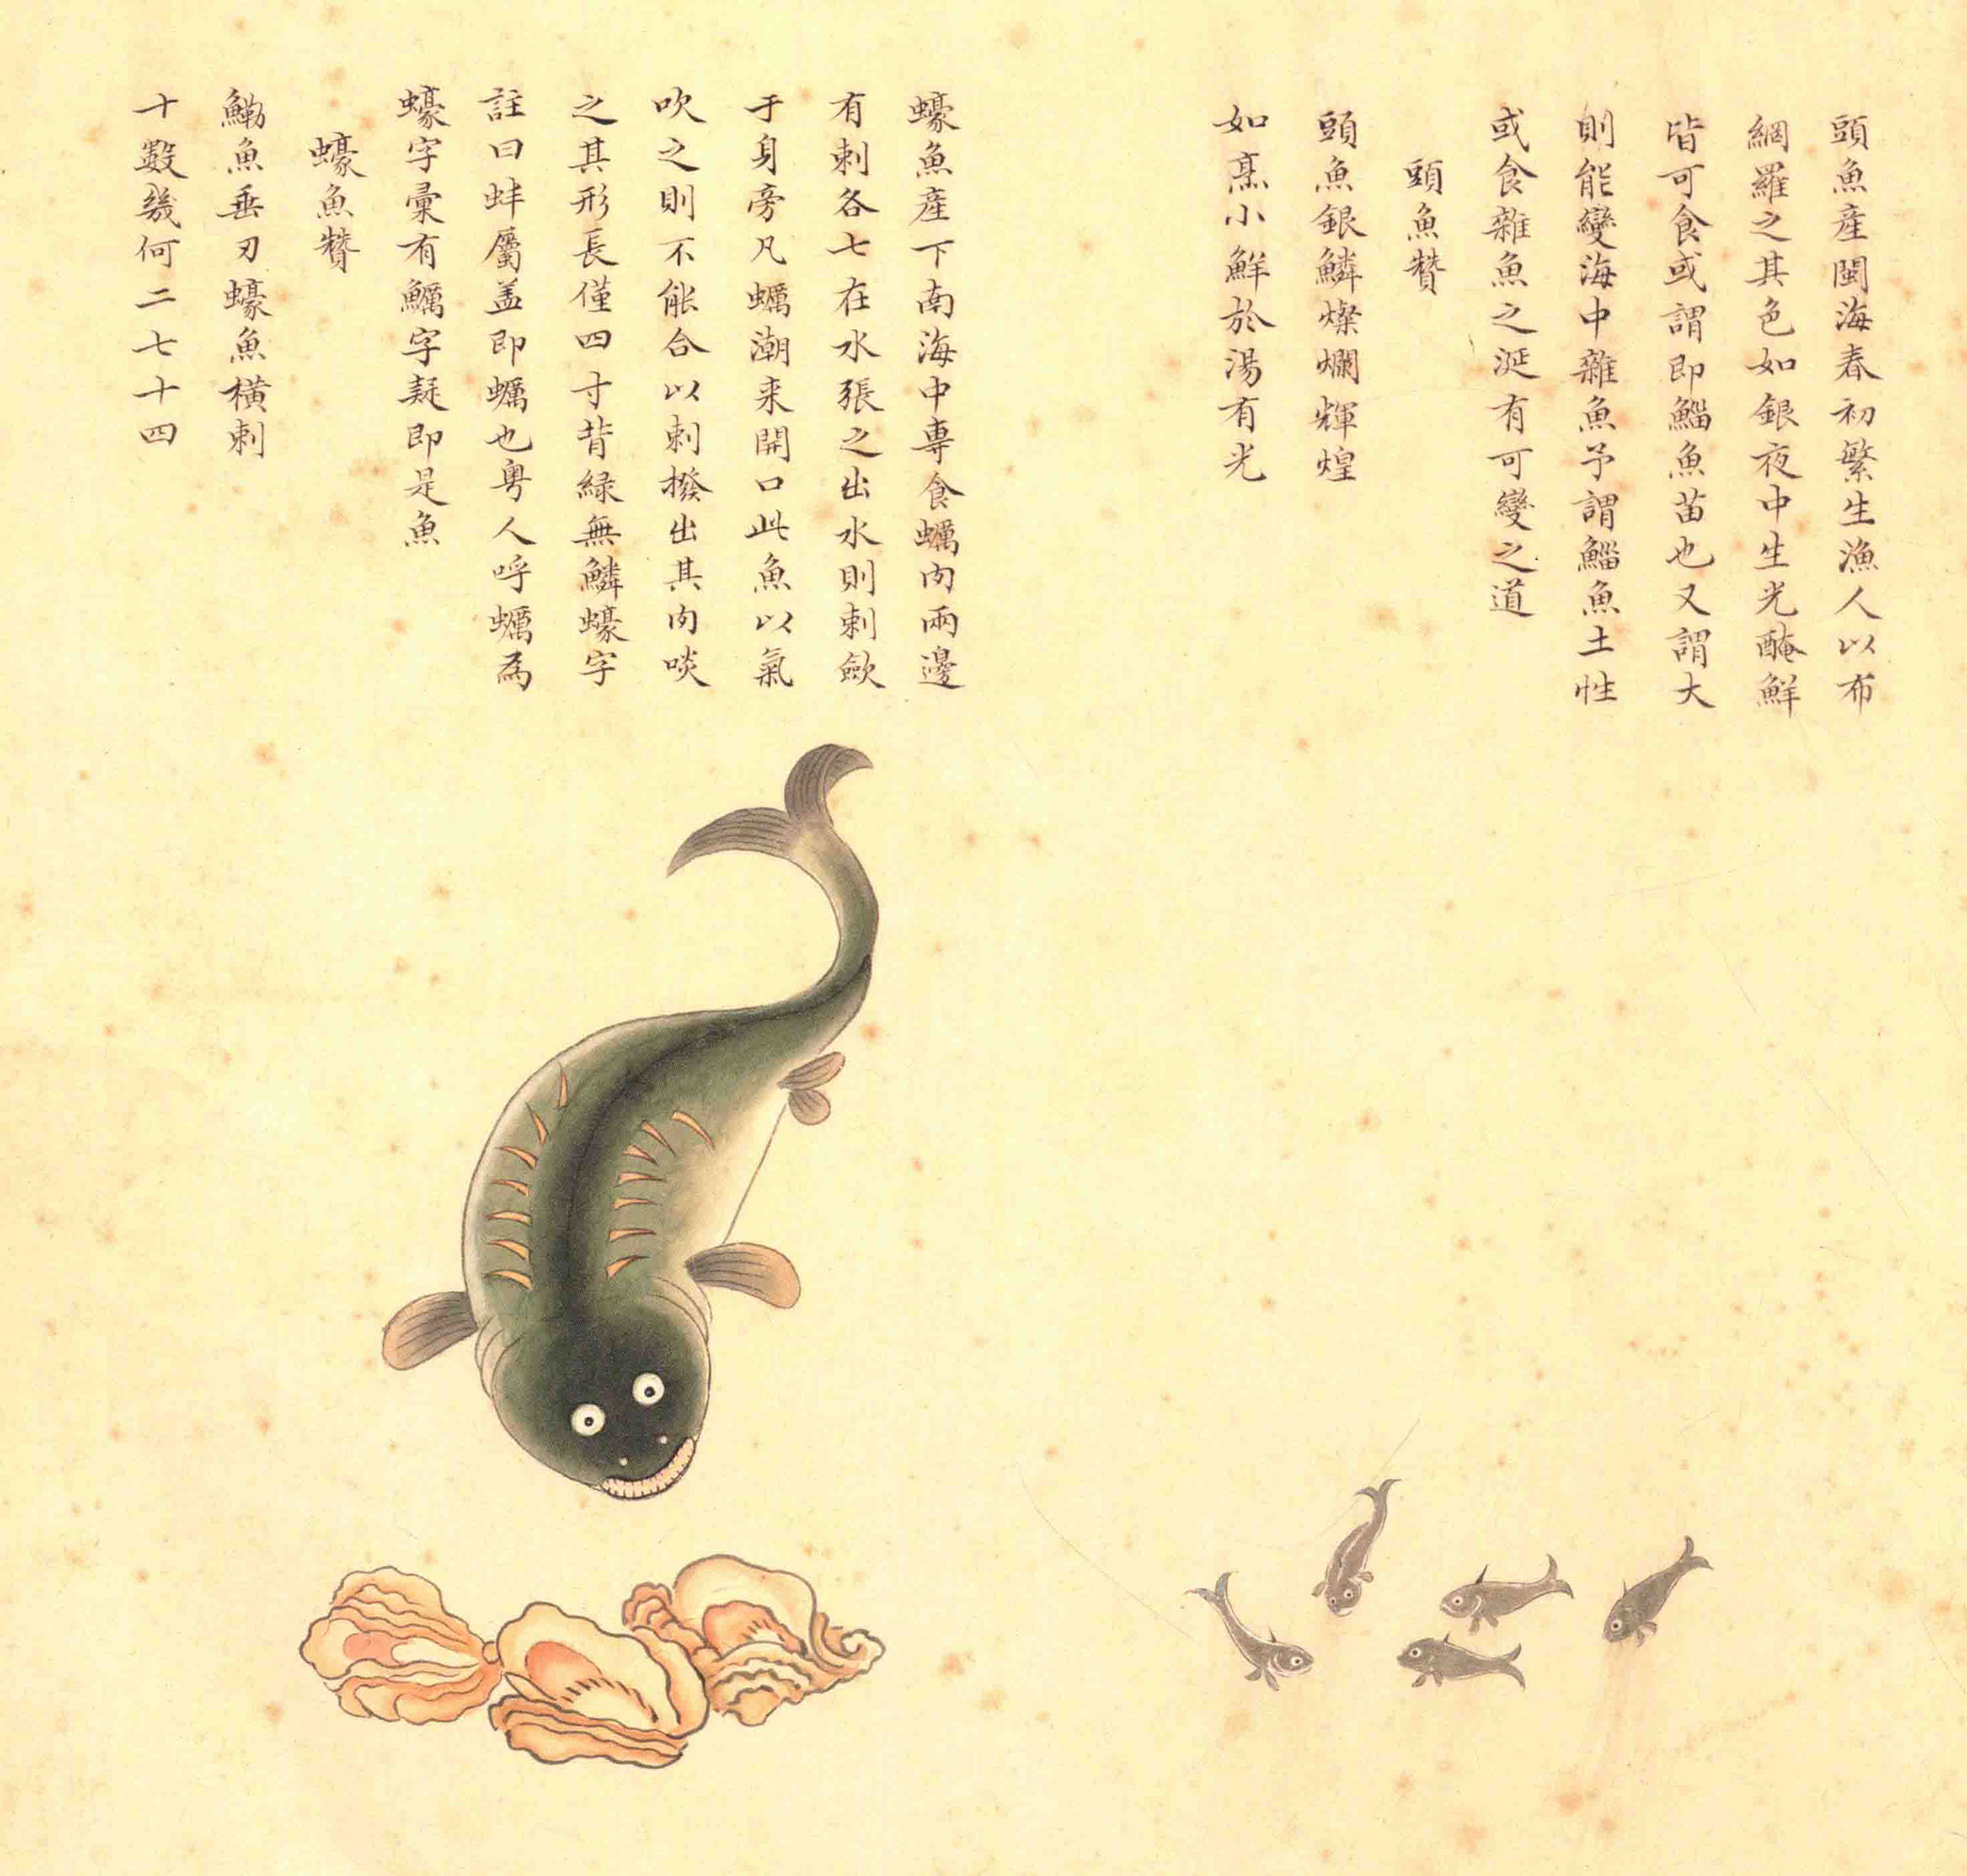 頭魚産閩海春初繁生漁人以布
網羅之其色如銀夜中生光醃鮮
皆可食或謂即鯔魚苗也又謂大
則能變海中雜魚予謂鯔魚土性
或食雜魚之涎有可變之道
頭魚贊
頭魚銀鱗燦爛輝煌
如烹小鮮於湯有光
蠔魚産下南海中專食蠣肉兩邊
有刺各七在水張之出水則刺歛
于身旁凡蠣潮来開口此魚以氣
吹之則不能合以刺撥出其肉啖
之其形長僅四寸背緑無鱗蠔字
註曰蚌屬盖即蠣也粤人呼蠣為
蠔字彙有鱱字疑即是魚
蠔魚贊
鰳魚垂刃蠔魚横刺
十數幾何二七十四